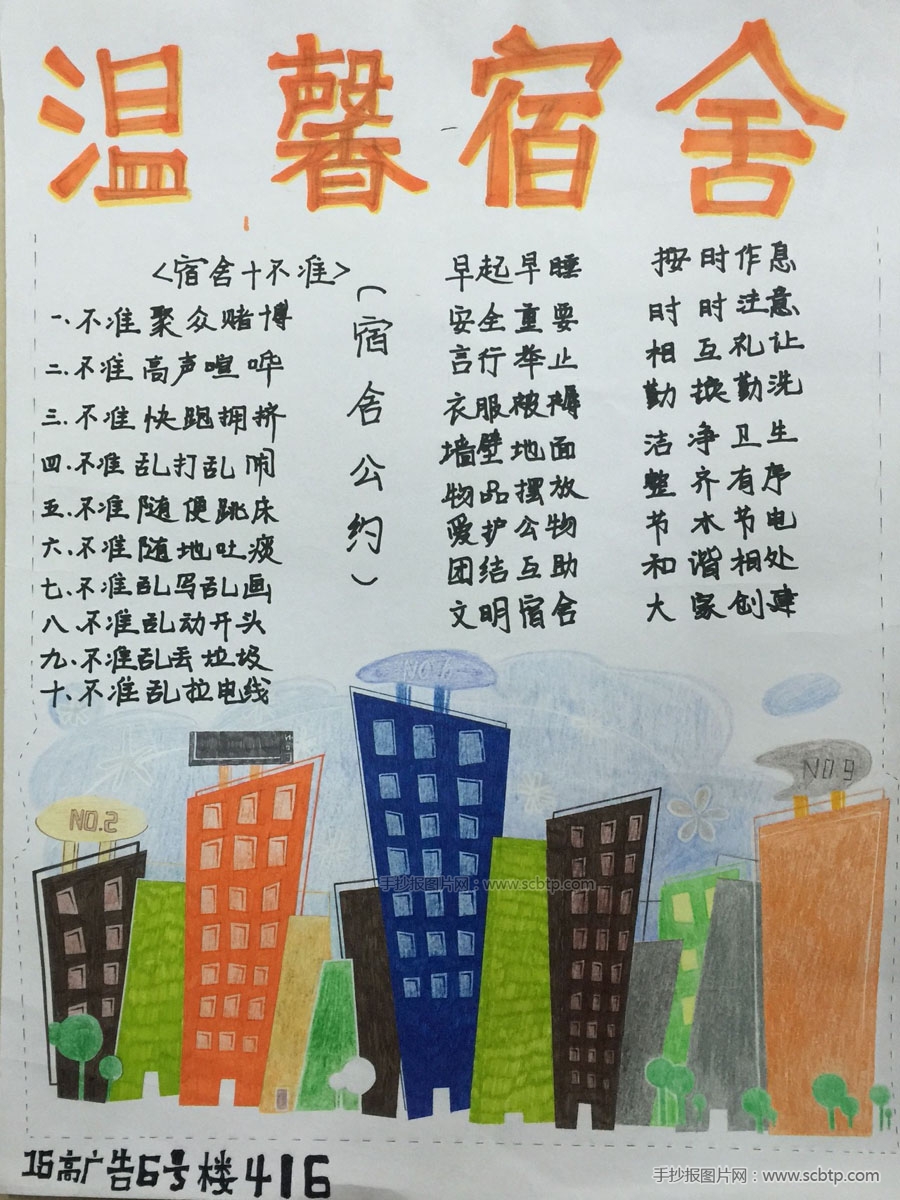 温馨宿舍
<宿舍十不准>
一.不准聚众赌博
二.不准高声喧哗
三.不准快跑拥挤
四.不准乱打乱闹
五.不准随便跳床
六.不准随地吐痰
七.不准乱写乱画
八.不准乱动开头
九.不准乱丢垃圾
十.不准乱拉电线
(宿舍公约)
早起早睡 按时作息
安全重要 时时注意
言行举止 相互礼让
衣服被褥 勤换勤洗
墙壁地面 洁净卫生
物品摆放 整齐有序
爱护公物 节水节电
团结互助 和谐相处
文明宿舍 大家创建
NO.6
NO.9
NO.2
手抄报图片网：www.scbtp.com
15高广告6号楼416
手抄报图片网：www.scbtp.com